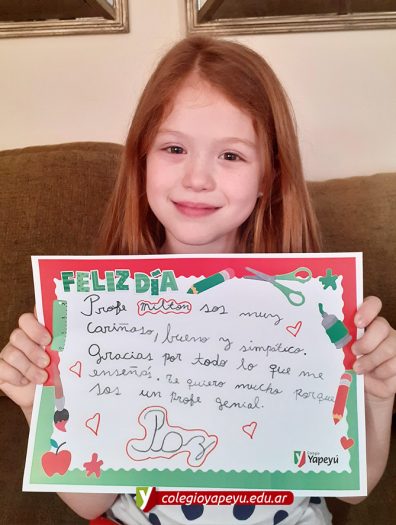 FELIZ DÍA
Profe Milton sos muy
cariñoso, bueno y simpático.
Gracias por todo lo que me
enseñás. Te quiero mucho porque
sos un profe genial.
Paz
Colegio
Yapeyú
colegioyapeyu.edu.ar